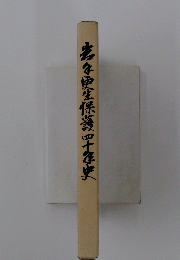 岩手更生保護四十年史